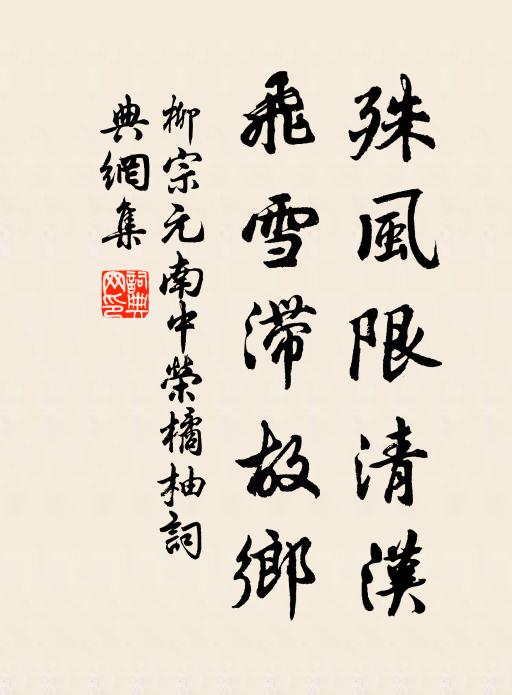 殊風限清漢
飛雪滯故鄉
柳宗元南中榮橘柚詞
典網集
詞典網印